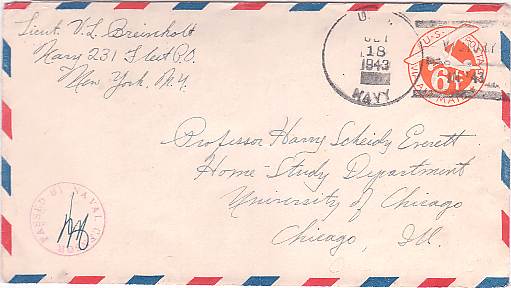 Lieut. V.L. Breinholt
Navy 231 Fleet P.O.
New York, N.Y.
U.S.
OCT
18
1943
NAVY
U.S. POSTAGE
6¢
VIA AIR MAIL
Professor Harry Scheidy Everett
Home-Study Department
University of Chicago
Chicago, Ill.
PASSED BY NAVAL CENSOR